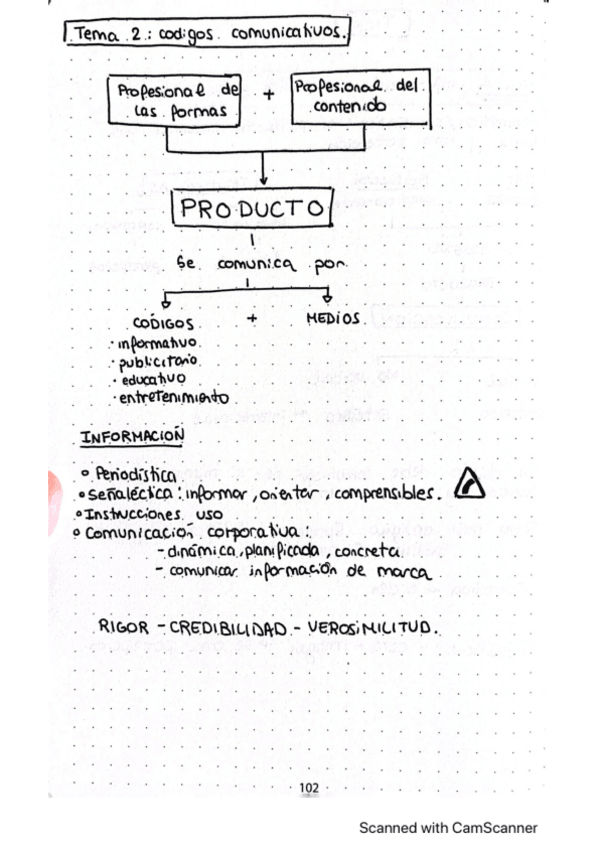 Tema 2: codigos comunicativos.
Profesional de las formas + Profesional del contenido
PRODUCTO
Se comunica por
CÓDIGOS + MEDIOS
· informativo
· publicitario
· educativo
· entretenimiento
INFORMACIÓN
° Periodística
° Señaléctica: informar, orientar, comprensibles.
° Instrucciones uso
° Comunicación corporativa:
- dinámica, planificada, concreta
- comunicar información de marca
RIGOR - CREDIBILIDAD - VEROSiMiLiTUD.
102
Scanned with CamScanner